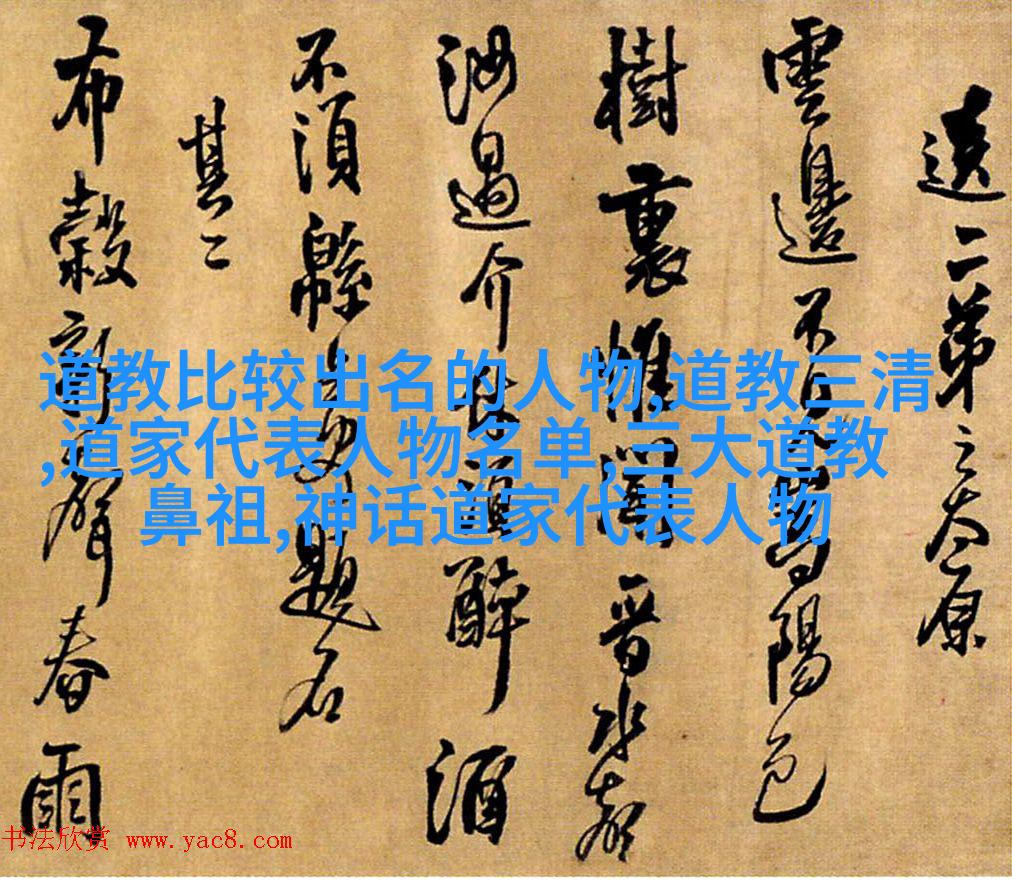 二弟之太原
雲邊不陽色
樹裏惟聞晉水聲
汝過介休醉酒
不須緜上題名
其二
布穀聲春雨
道教比较出名的人物,道教三清
,道家代表人物名单,三大道教
鼻祖,神话道家代表人物
书法欣赏 www.yac8.com